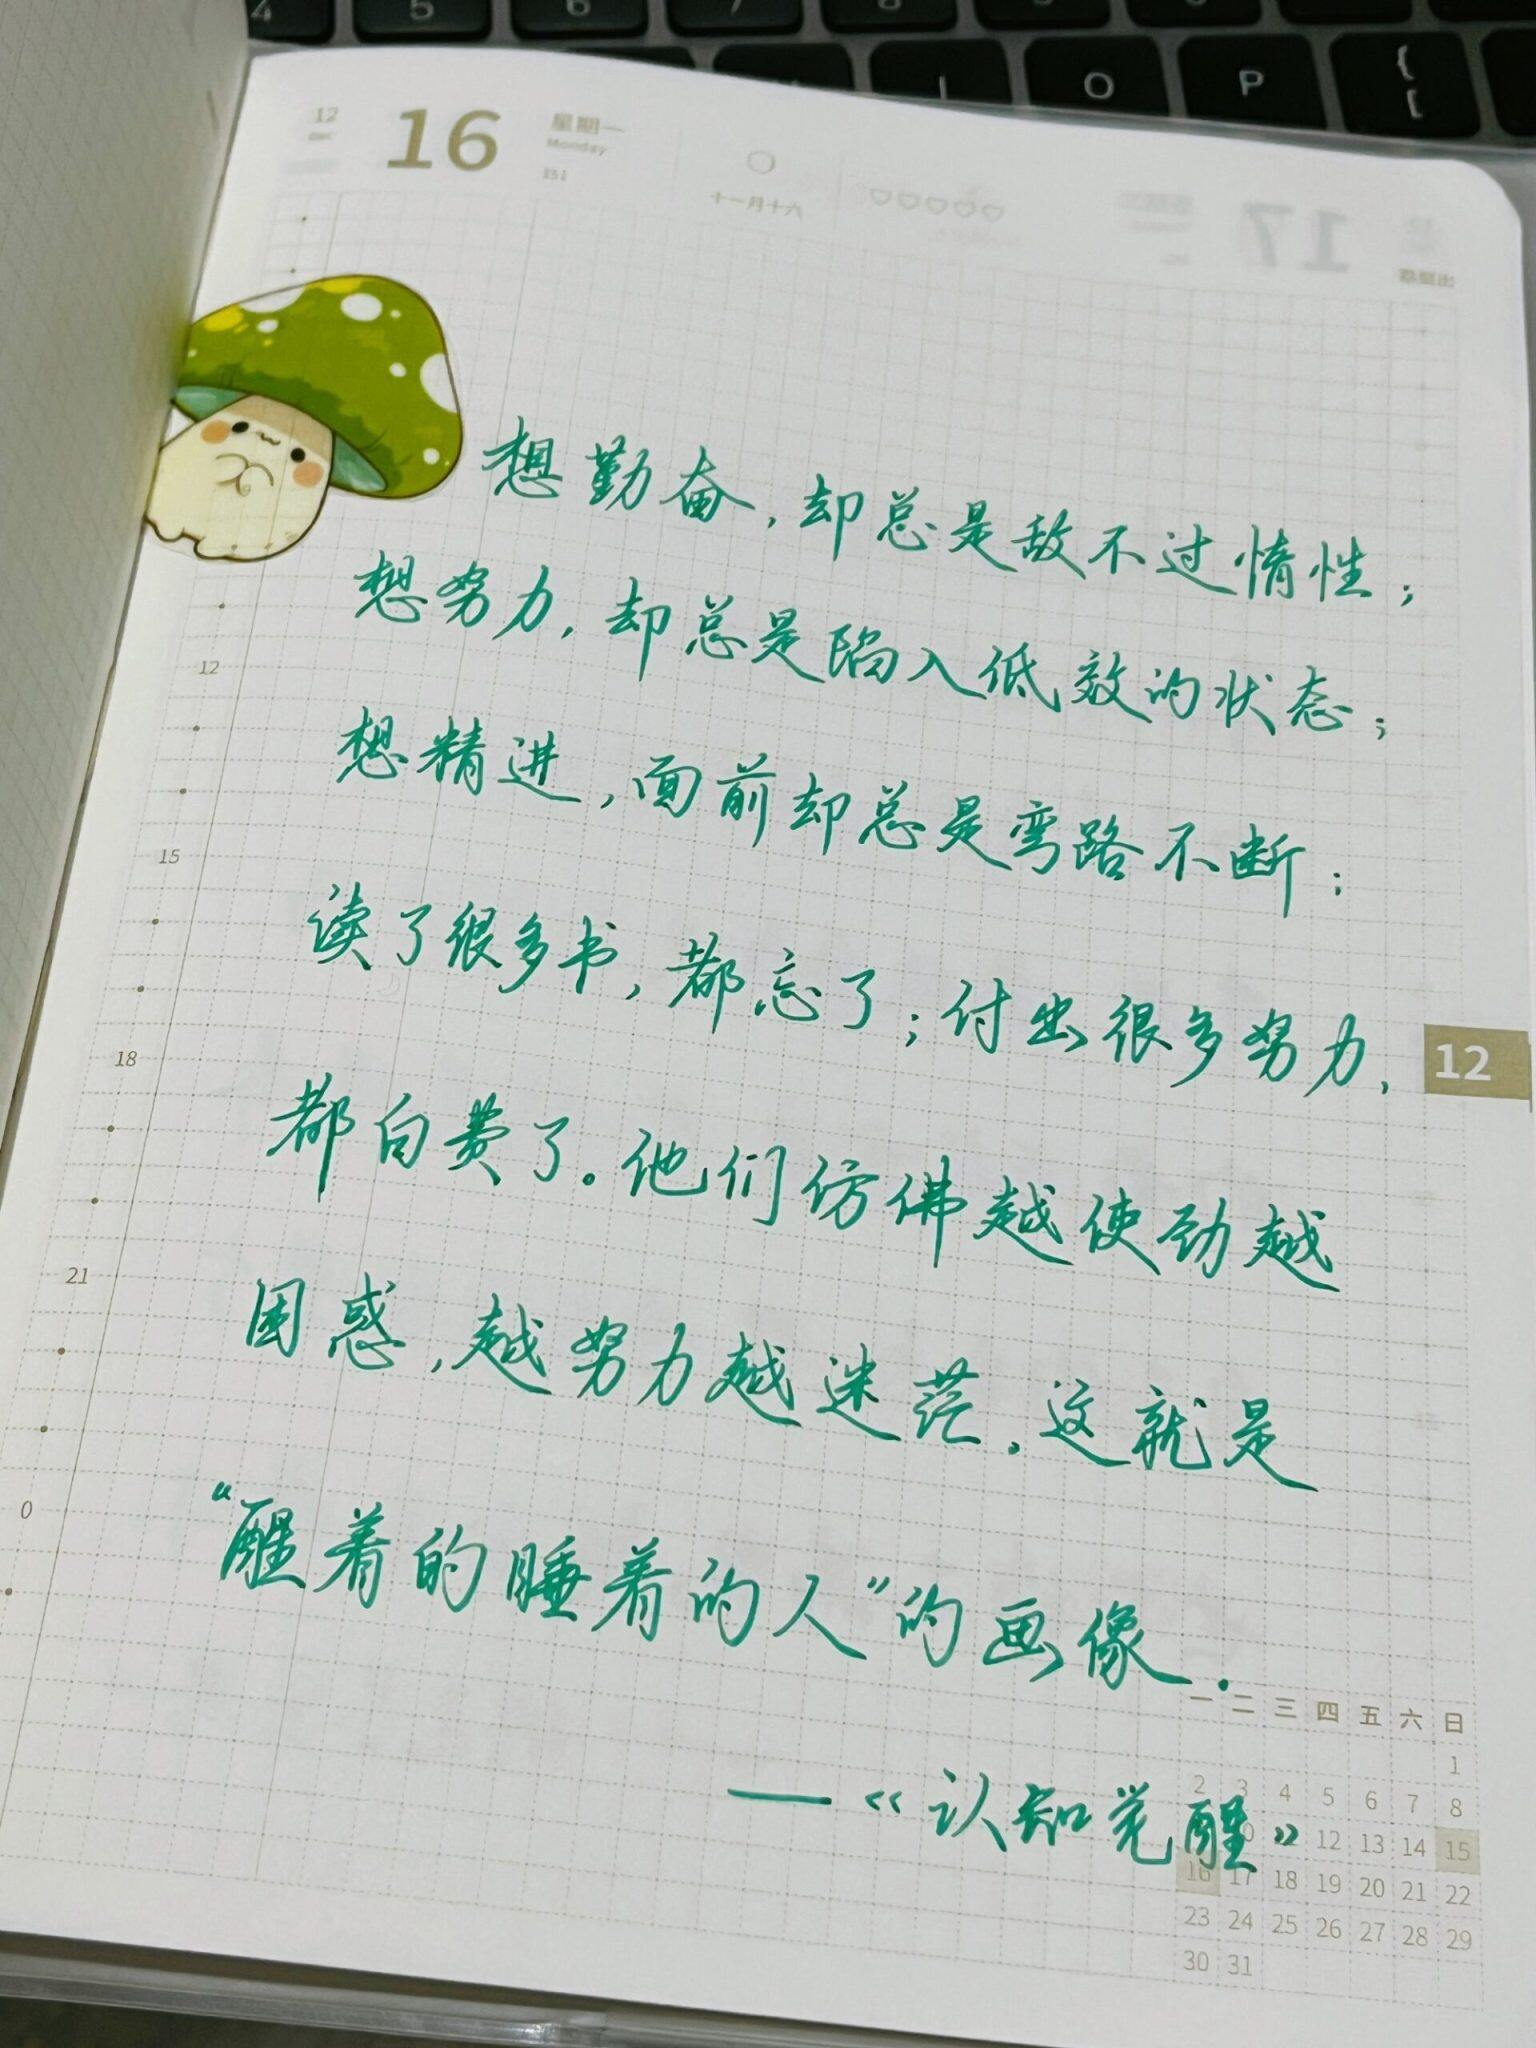 4 5 6 7 8
I O P { [
12
Dec
16
星期一
Monday
351
十一月十六
17
想勤奋，却总是敌不过惰性；
想努力，却总是陷入低效的状态；
12
想精进，面前却总是弯路不断；
15
读了很多书，都忘了；付出很多努力，
12
18
都白费了。他们仿佛越使劲越
21
困惑，越努力越迷茫。这就是
0
“醒着的睡着的人”的画像.
一 二 三 四 五 六 日
1
2 3 4 5 6 7 8
——《认知觉醒》
12 13 14 15
16 17 18 19 20 21 22
23 24 25 26 27 28 29
30 31